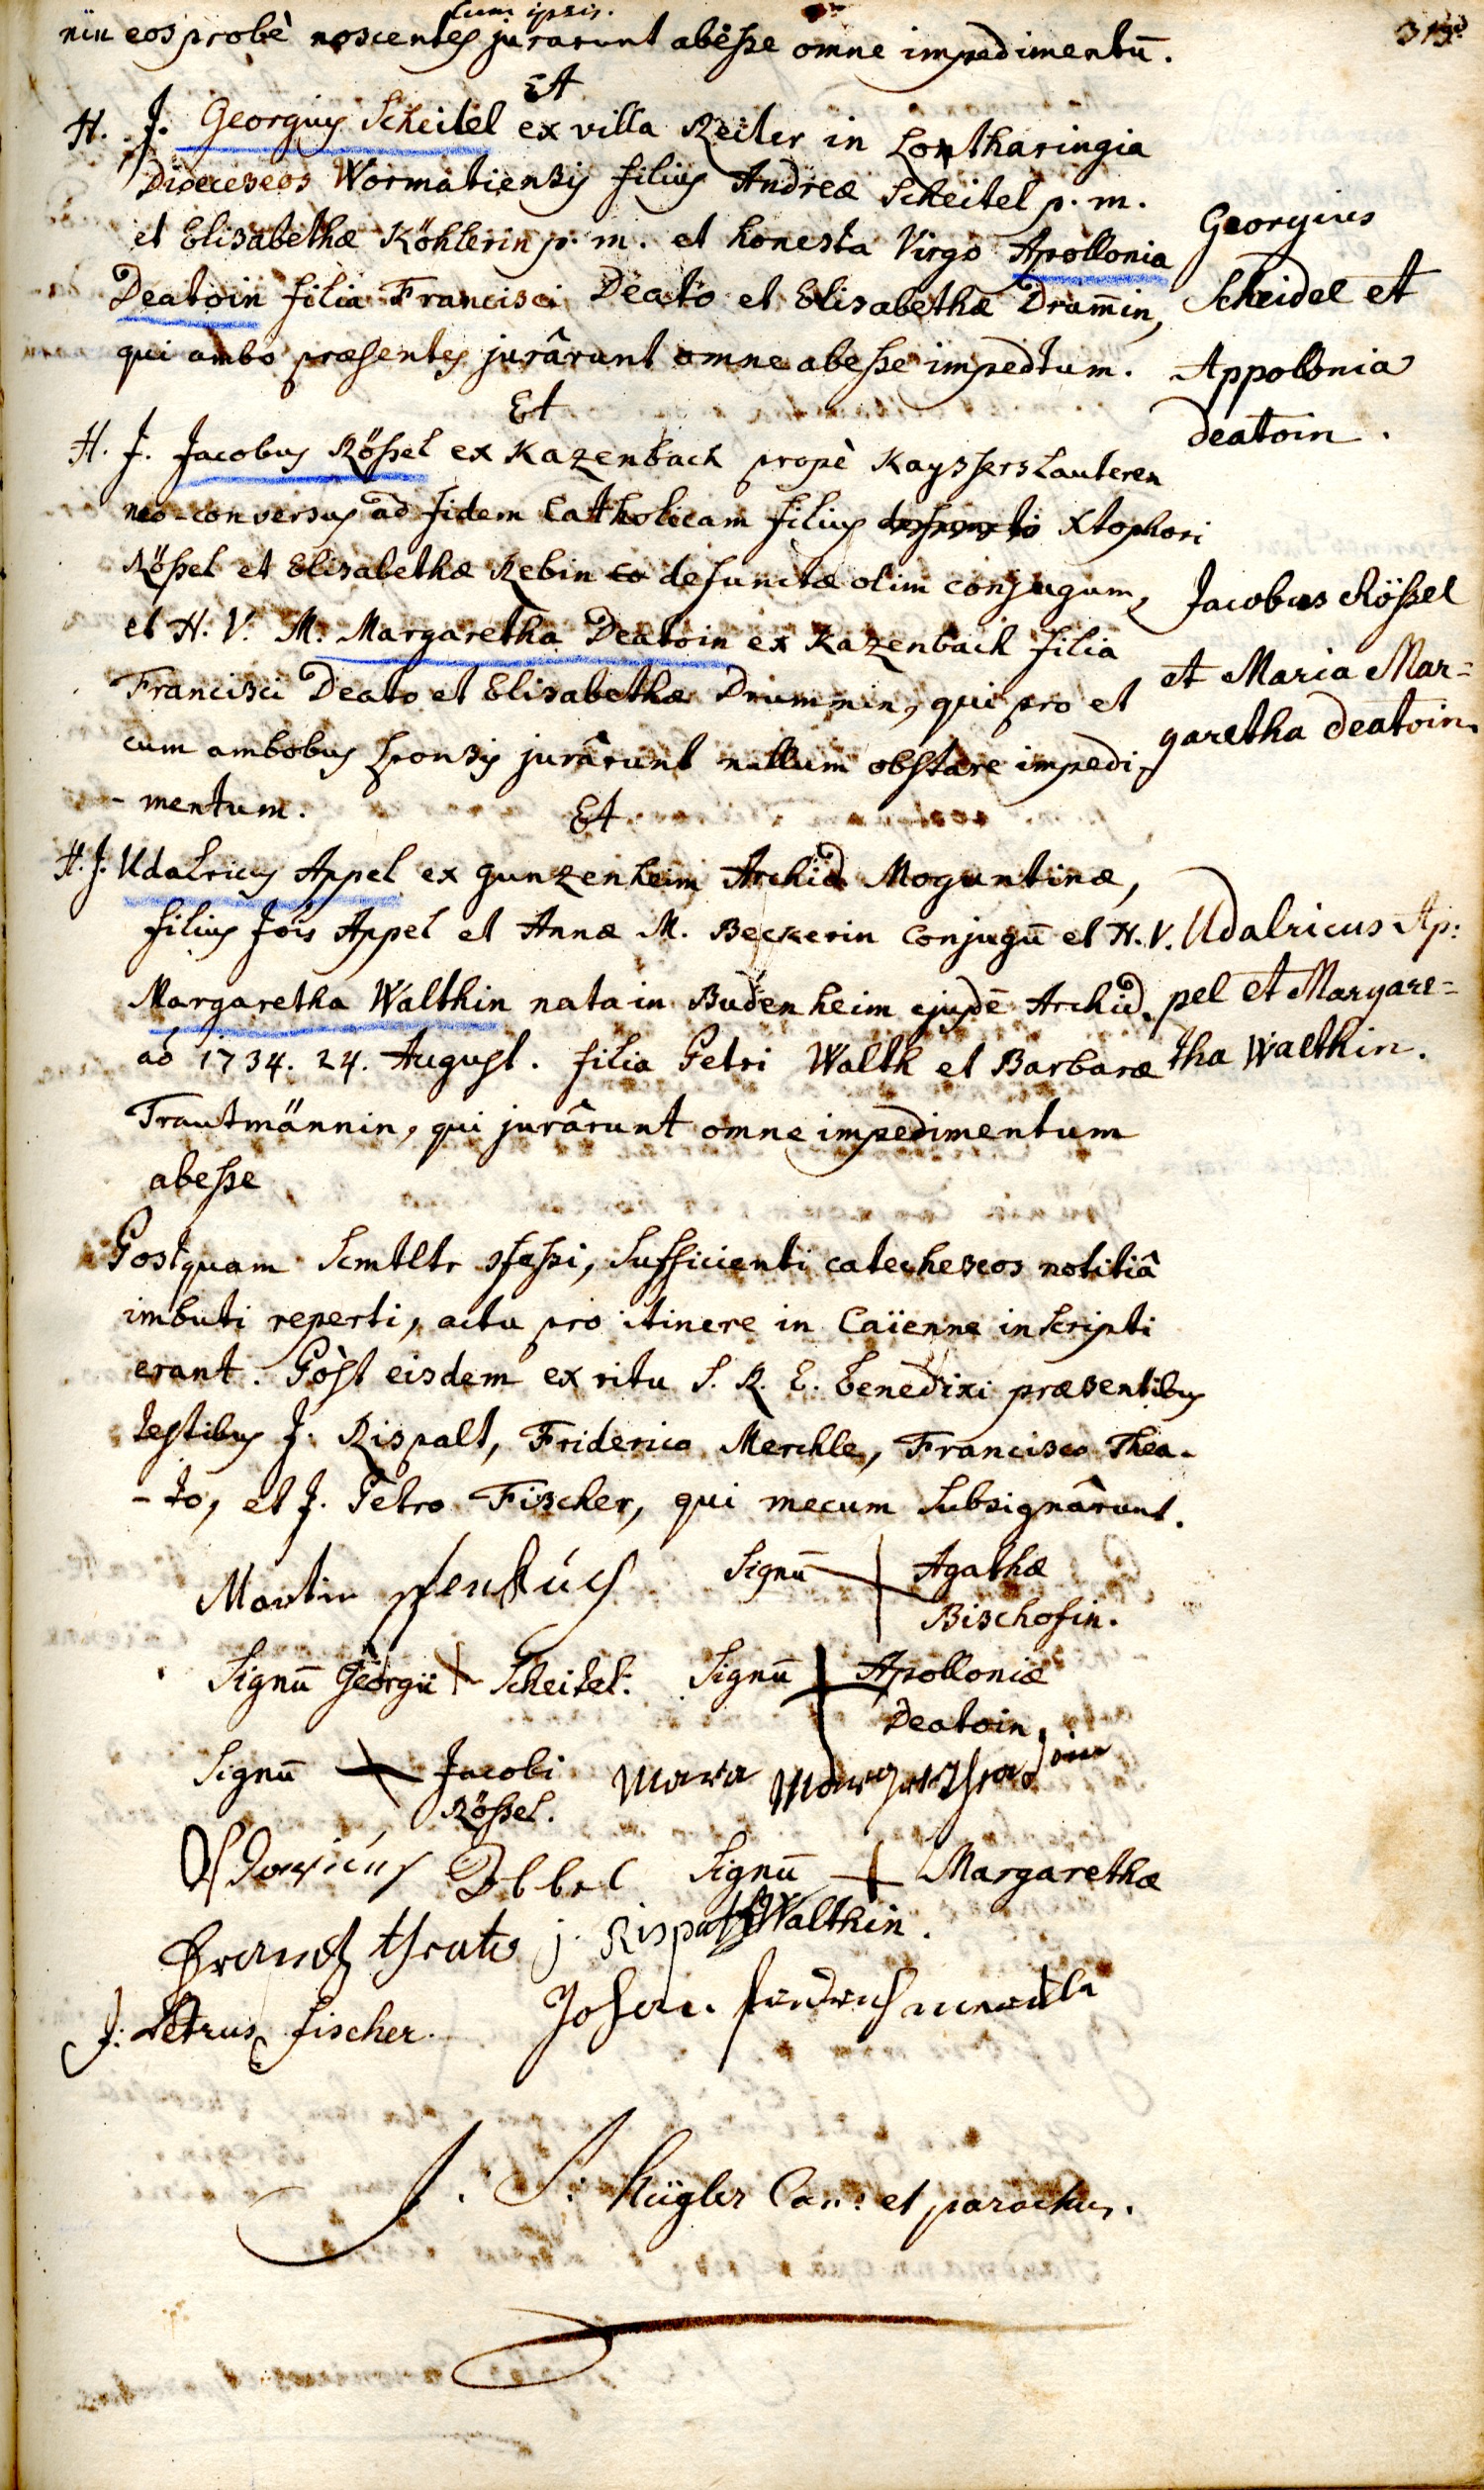 cum ipsis.
eos probè noscentes jurarunt abesse omne impedimentū.
Et
H. J. Georgius Scheitel ex villa Reiler in Lontharingia
Dioeceseos Wormatiensis filius Andreæ Scheitel p. m.
et Elisabethæ Köhlerin p. m. et honesta Virgo Apollonia
Deatoin filia Francisci Deato et Elisabethæ Drum̄in,
qui ambo præsentes jurârunt omne abesse impedtum.
Georgius
Scheidel et
Appollonia
deatoin.
Et
H. J. Jacobus Rößel ex Kazenbach propè Kaysserslauteren
neo-conversus ad fidem Catholicam filius defuncti Xtophori
Rößel et Elisabethæ Rebin co defunctæ olim conjugum,
et H. V. M. Margaretha Deatoin ex Kazenbach filia
Francisci Deato et Elisabethæ Drummin, qui pro et
cum ambobus sponsis jurârunt nullum obstare impedi-
-mentum.
Jacobus Rößel
et Maria Mar=
garetha deatoin.
Et
H. J. Udalricus Appel ex Gunzenheim Archid Moguntinæ,
filius Jois Appel et Annæ M. Beckerin conjugū et H. V.
Margaretha Walthin nata in Budenheim ejusdē Archid.
aō 1734. 24. August. filia Petri Walth et Barbaræ
Trautmännin, qui jurârunt omne impedimentum
abesse
Udalricus Ap:
pel et Margare=
tha Walthin.
Postquam Scmtltr sfessi, sufficienti catecheseos notitiâ
imbuti reperti, actu pro itinere in Caïenne inscripti
erant. Pòst eisdem ex ritu S. R. E. benedixi præsentibus
testibus J. Rispalt, Friderico Merckle, Francisco Thea-
-to, et J. Petro Fischer, qui mecum subsignârunt.
Martin
Signū Agathæ
Bischofin.
Signū Georgii Scheitel. Signū Apolloniæ
Deatoin.
Signū Jacobi
Rössel.
Signū Margarethæ
Walthin.
j. Rispalt
J: Petrus fischer.
J. S: Kügler Can: et parochus.